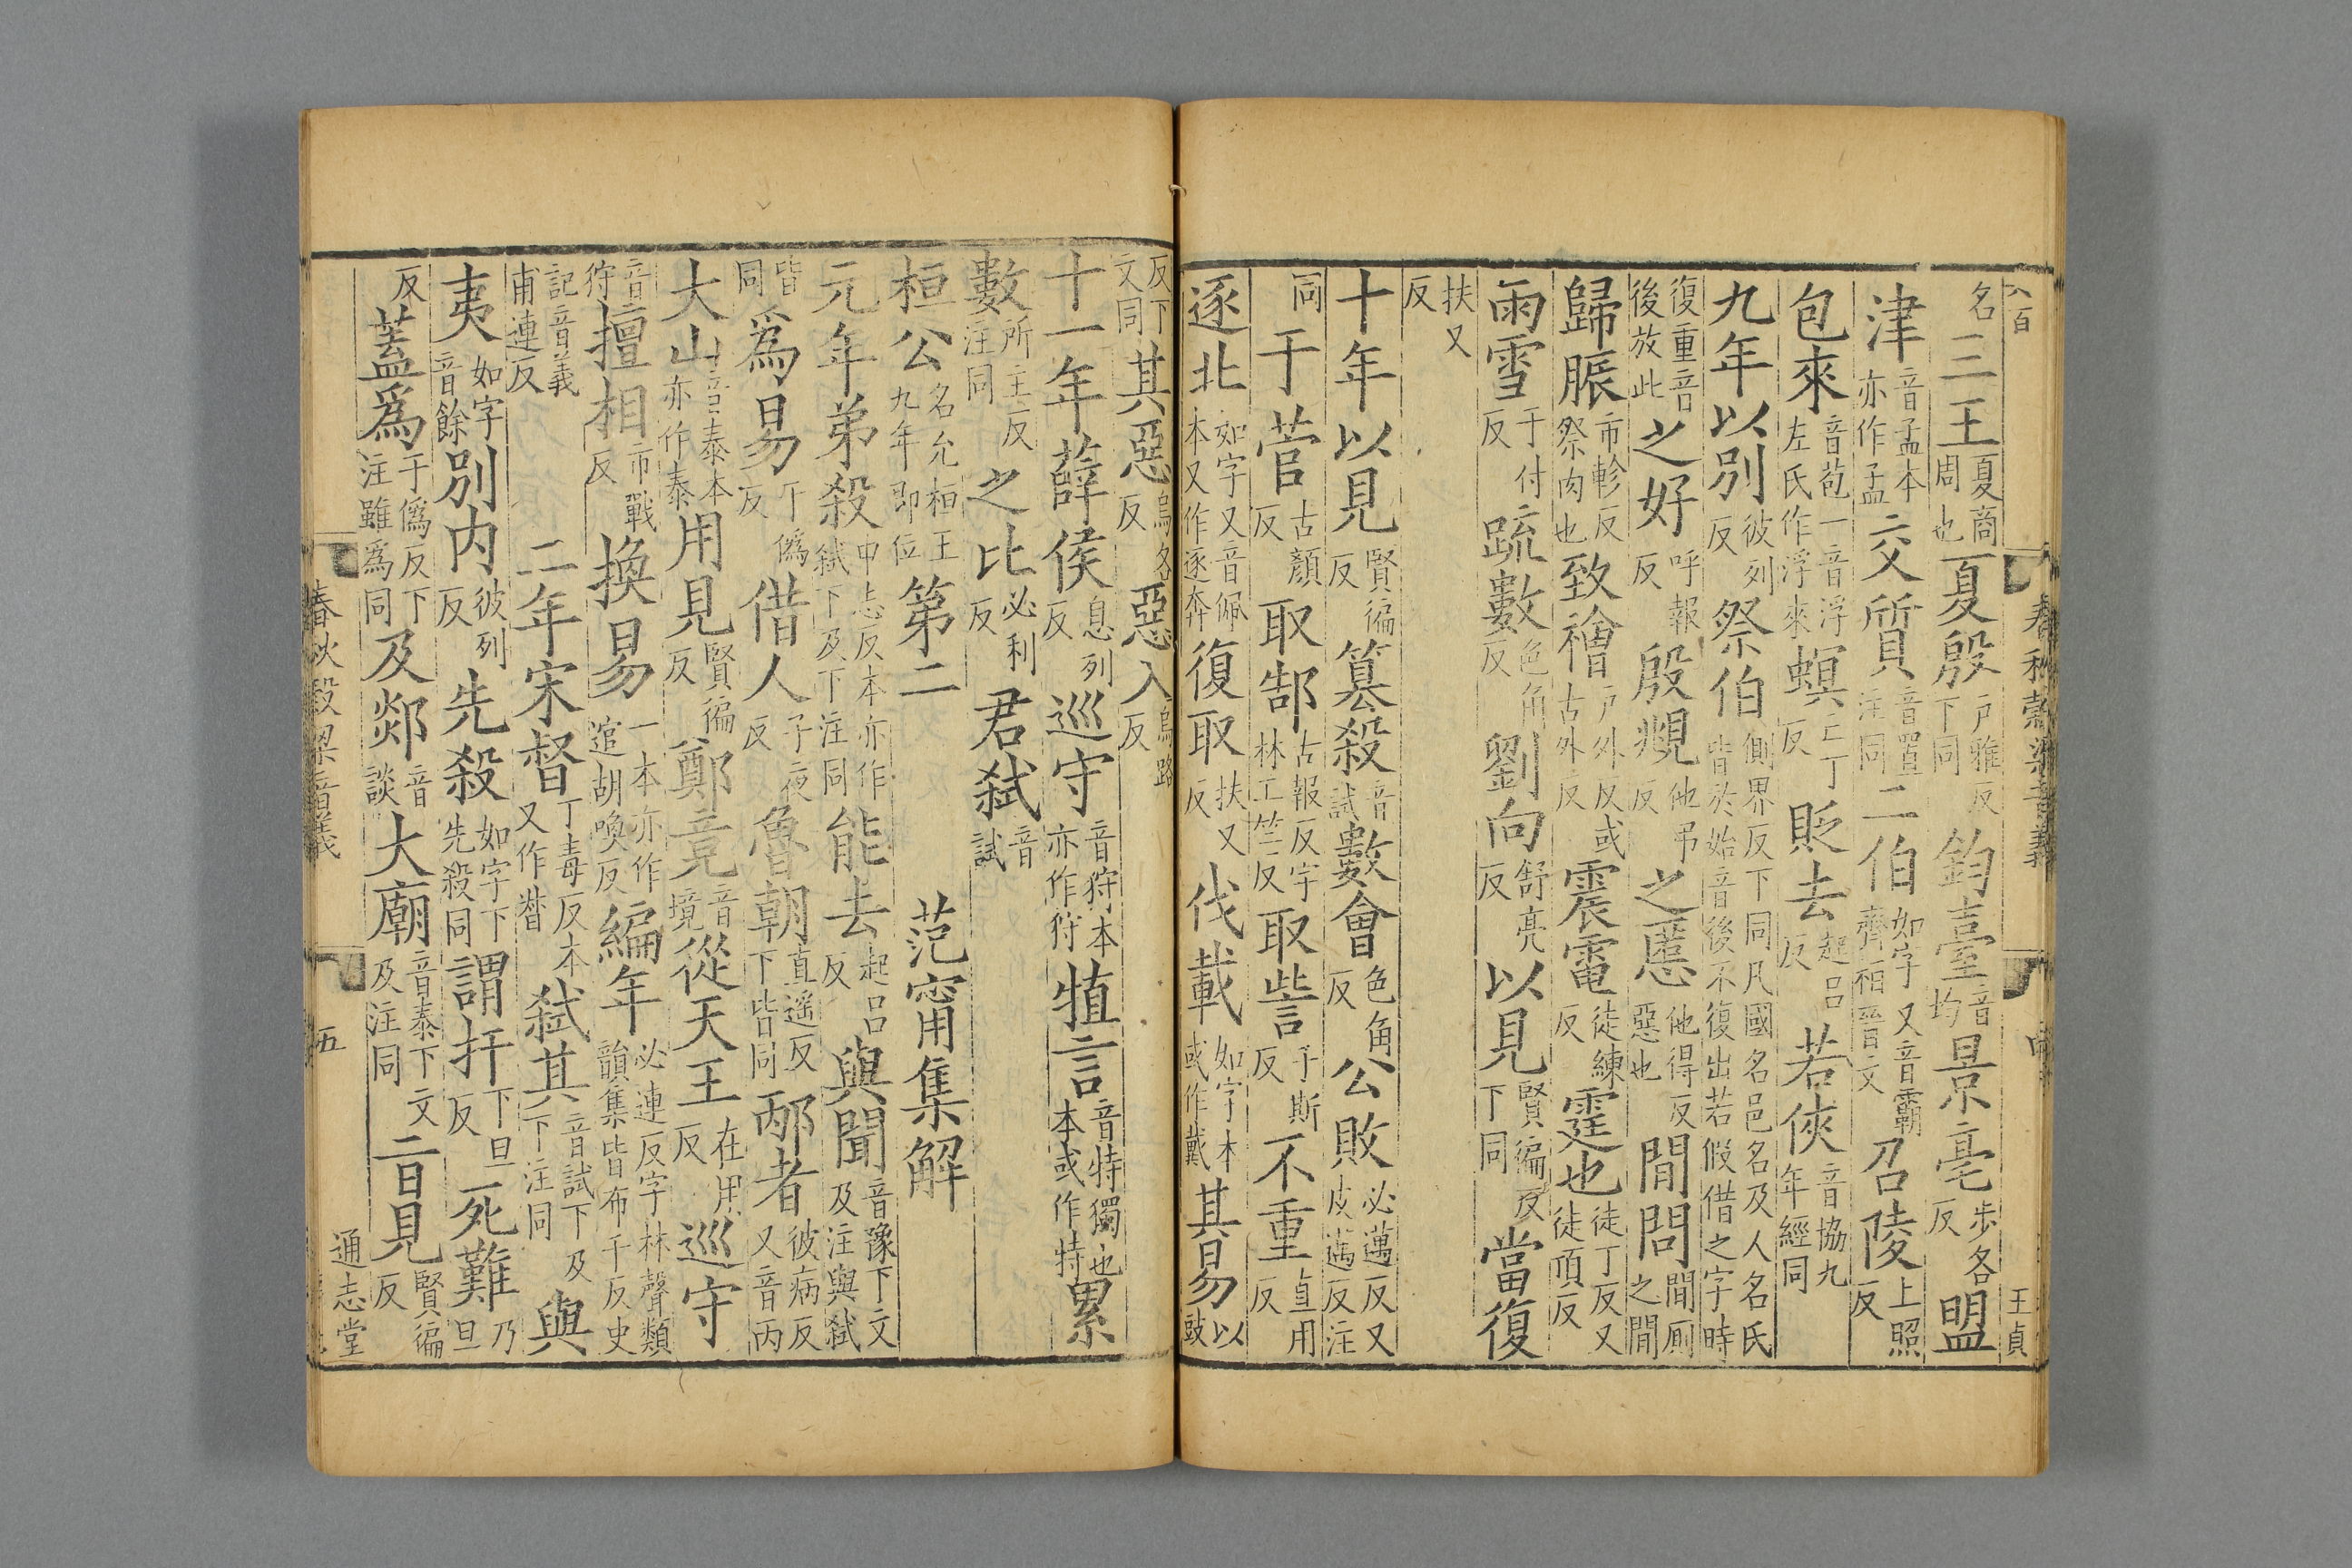 八百 春秋穀梁音義 王貞
名三王夏商周也夏殷戸雅反下同鈞臺音均景亳步各反盟
津音孟本亦作孟交質音置注同二伯如字又音霸齊桓晉文召陵上照反
包來音苞一音浮左氏作浮來螟亡丁反貶去起呂反若俠音協九年經同
九年以別彼列反祭伯側界反下同凡國名邑名及人名氏皆於始音後不復出若假借之字時
復重音後放此之好呼報反殷覜他弔反之慝他得反惡也閒問閒厠之閒
歸脤市軫反祭肉也致禬戸外反或古外反震電徒練反霆也徒丁反又徒頂反
雨雪于付反疏數色角反劉向舒亮反以見賢徧反下同當復
扶又反
十年以見賢徧反篡殺音試數會色角反公敗必邁反又皮邁反注
同于菅古顏反取郜古報反字林工竺反取訾子斯反不重直用反
逐北如字又音佩本又作逐奔復取扶又反伐載如字本或作戴其易以豉
反下文同其惡烏各反惡入烏路反
十一年薛侯息列反巡守音狩本亦作狩犆言音特獨也本或作特累
數所主反注同之比必利反君弒音試
桓公名允桓王九年即位第二 范甯集解
元年弟殺申志反本亦作弒下及下注同能去起呂反與聞音豫下文及注與弒
皆同爲易于僞反借人子夜反魯朝直遥反下皆同邴者彼病反又音丙
大山音泰本亦作泰用見賢徧反鄭竟音境從天王在用反巡守
音狩擅相市戰反換易一本亦作逭胡喚反編年必連反字林聲類韻集皆布千反史
記音義甫連反二年宋督丁毒反本又作督弒其音試下及下注同與
夷如字音餘別內彼列反先殺如字下先殺同謂扞下旦反死難乃旦
反蓋爲于僞反下注雖爲同及郯音談大廟音泰下文及注同二曰見賢徧反
春秋穀梁音義 五 通志堂